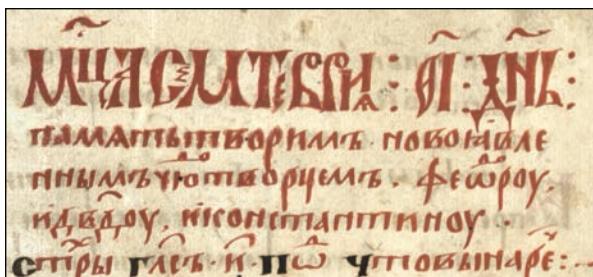 Мцⷭ҇а семтевриѧ : ѳ҃і : дн҃ь :
памѧть творимъ новоꙗвле
ннымъ чюⷣ҇отворцемъ . феѡⷣроу ,
и двⷣдоу , и константиноу .
стⷯры глⷭ҇ъ . и҃ . пѡⷣ что вы наре҃ :